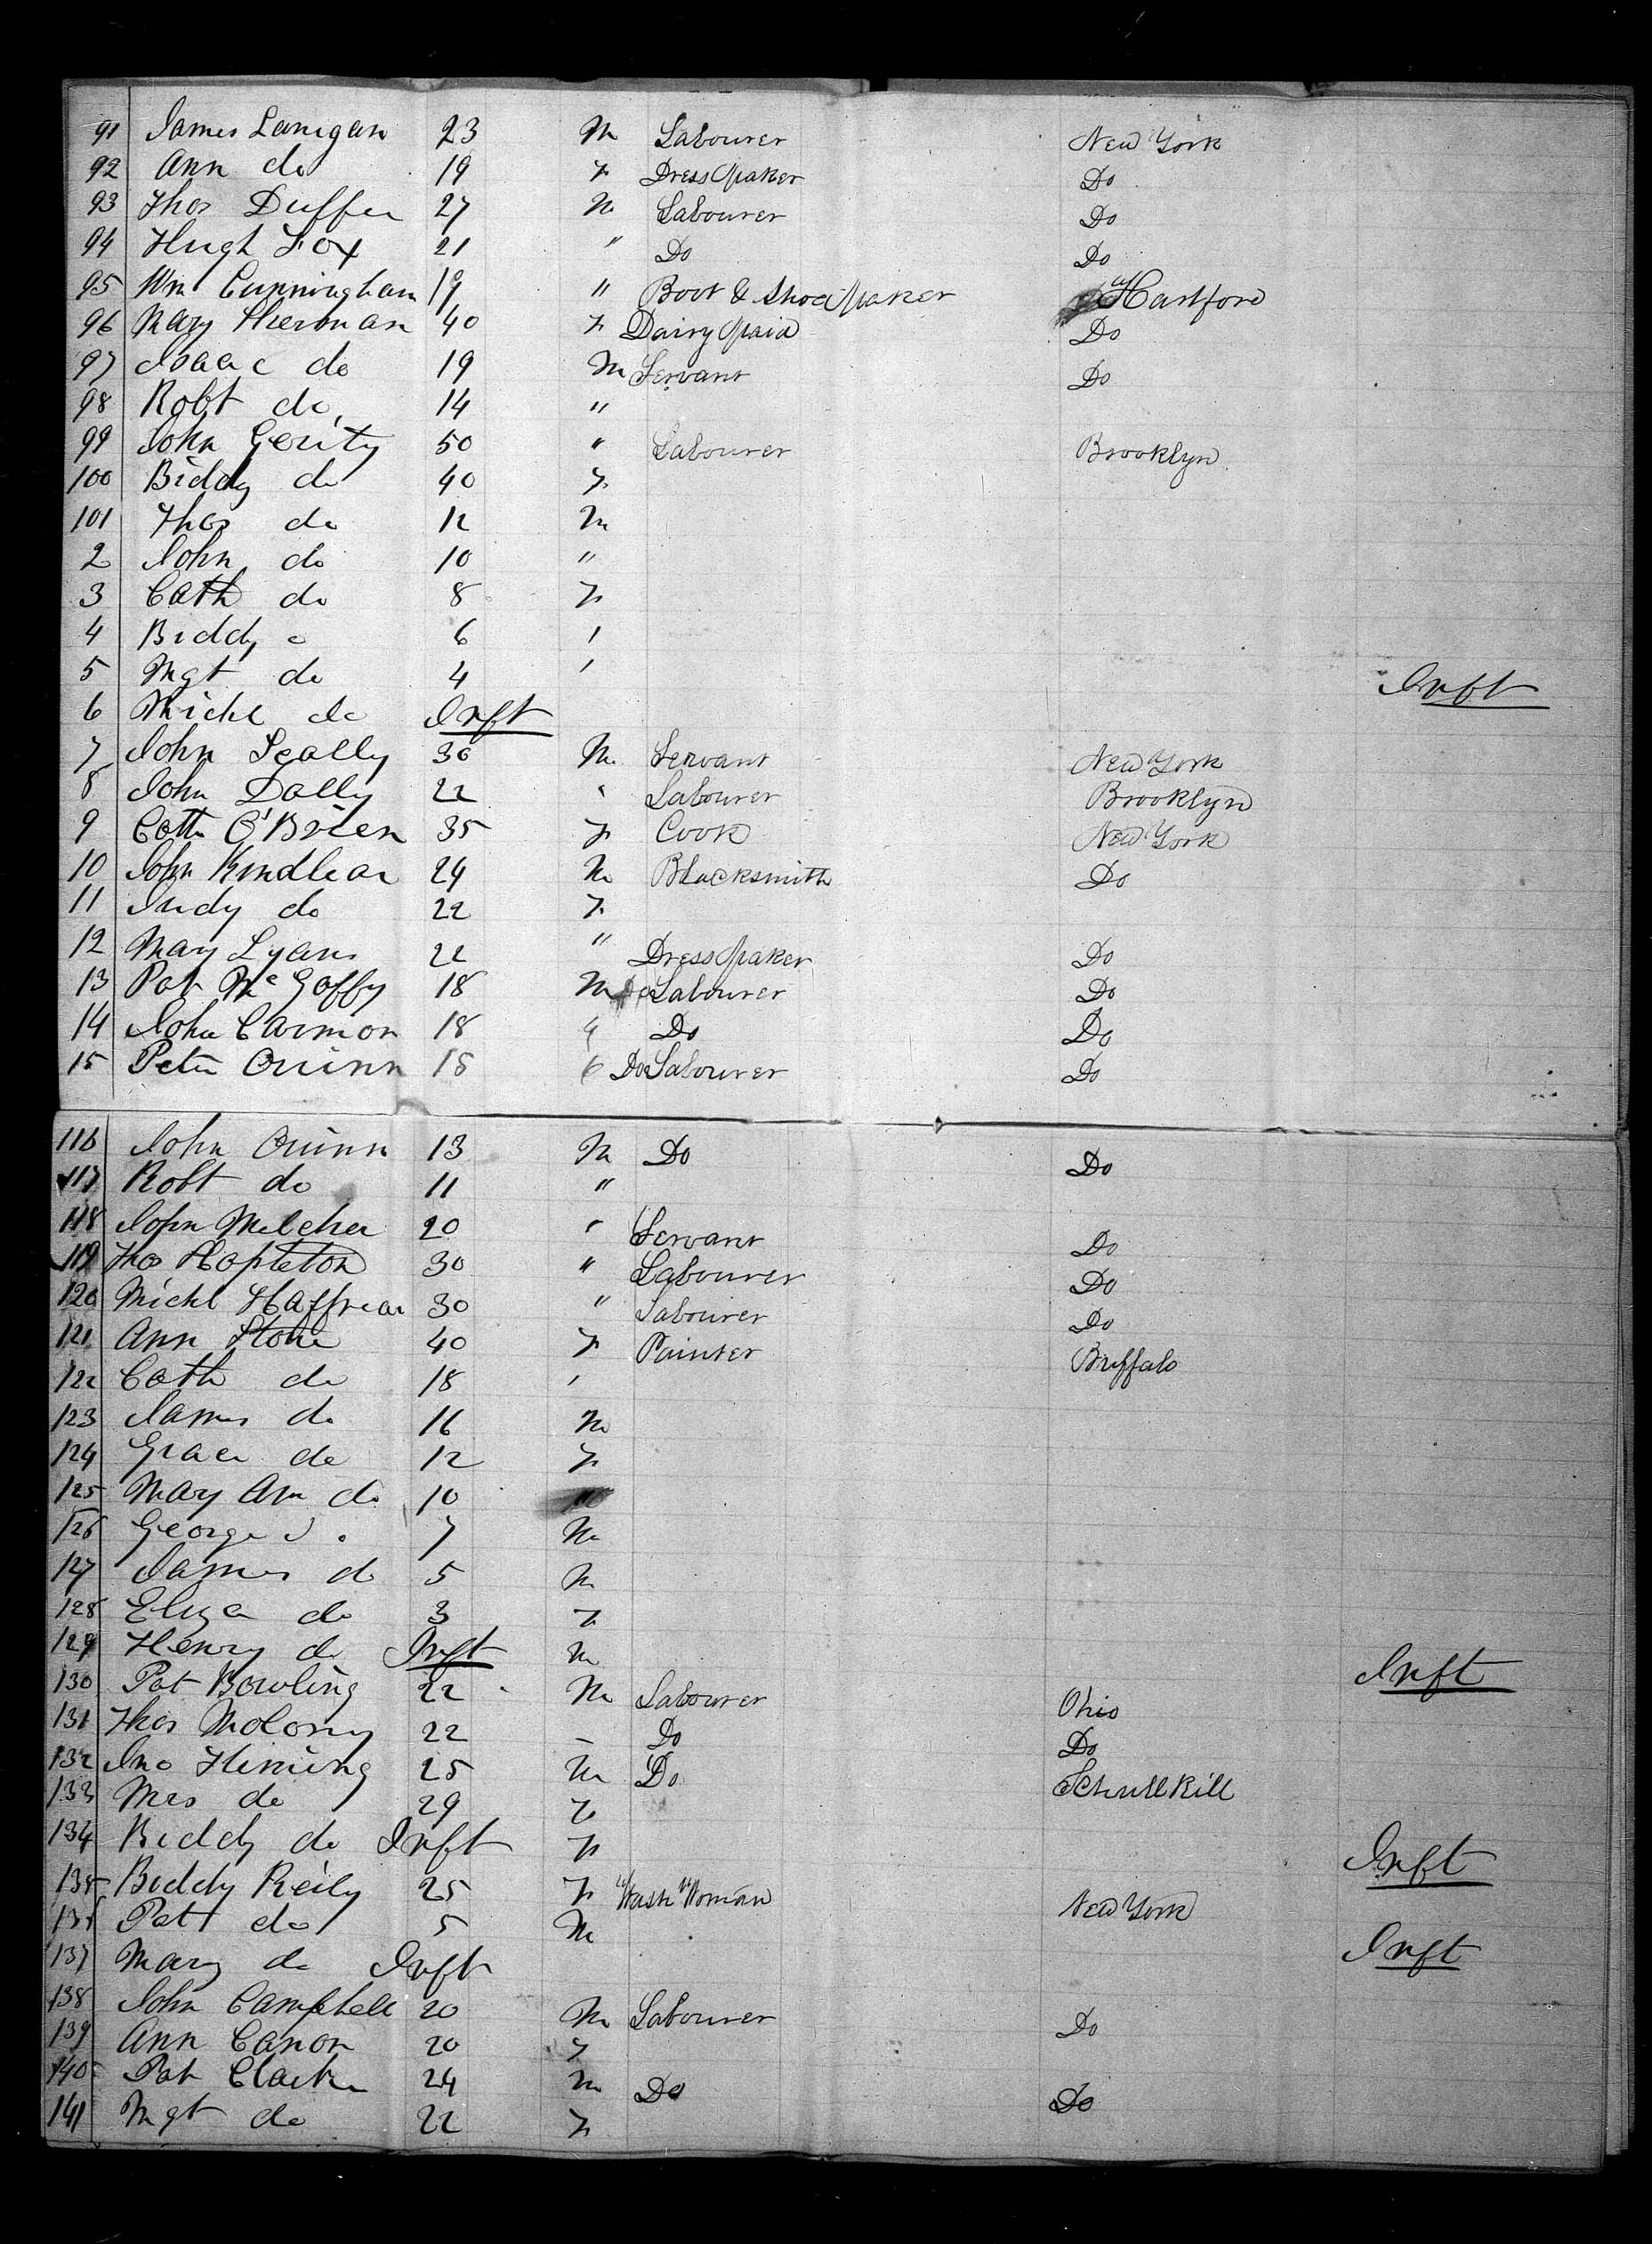 91 James Lanigan 23 M Labourer New York
92 Ann do 19 F Dress Maker Do
93 Thos Duffen 27 M Labourer Do
94 Hugh Fox 21 " Do Do
95 Wm Cunningham 19 " Boot & Shoe Maker Hartford
96 Mary Sherman 40 F Dairy Maid Do
97 Isaac do 19 M Servant Do
98 Robt do 14 "
99 John Gerity 50 " Labourer Brooklyn
100 Biddy do 40 F
101 Thos do 12 M
2 John do 10 "
3 Cath do 8 F
4 Biddy 6
5 Mgt do 4
6 Michl do Inft Inft
7 John Scally 30 M Servant New York
8 John Dally 22 " Labourer Brooklyn
9 Cath O'Brien 35 F Cook New York
10 John Kindlear 24 M Blacksmith Do
11 Judy do 22 F
12 Mary Lyans 22 " Dress Maker Do
13 Pat McGaffy 18 M Labourer Do
14 John Carmon 18 Do Do
15 Peter Quinn 15 Do Labourer Do
116 John Quinn 13 M Do Do
117 Robt do 11 "
118 John Melcher 20 " Servant Do
119 Thos Hapleton 30 " Labourer Do
120 Michl Haffrear 30 " Labourer Do
121 Ann Stone 40 F Painter Buffalo
122 Cath do 18
123 James do 16 M
124 Grace do 12 F
125 Mary Ann do 10
126 George 7 M
127 James do 5 M
128 Eliza do 3 F
129 Henry do Inft M Inft
130 Pat Bowling 22 M Labourer Ohio
131 Thos Molony 22 Do Do
132 Jno Fleming 25 M Do Schullkill
133 Mrs do 29 F
134 Biddy do Inft F Inft
135 Biddy Reily 25 F Wash Woman New York
136 Pat do 5 M
137 Mary do Inft Inft
138 John Campbell 20 M Labourer Do
139 Ann Canon 20 F
140 Pat Clarke 24 M Do Do
141 Mgt do 22 F